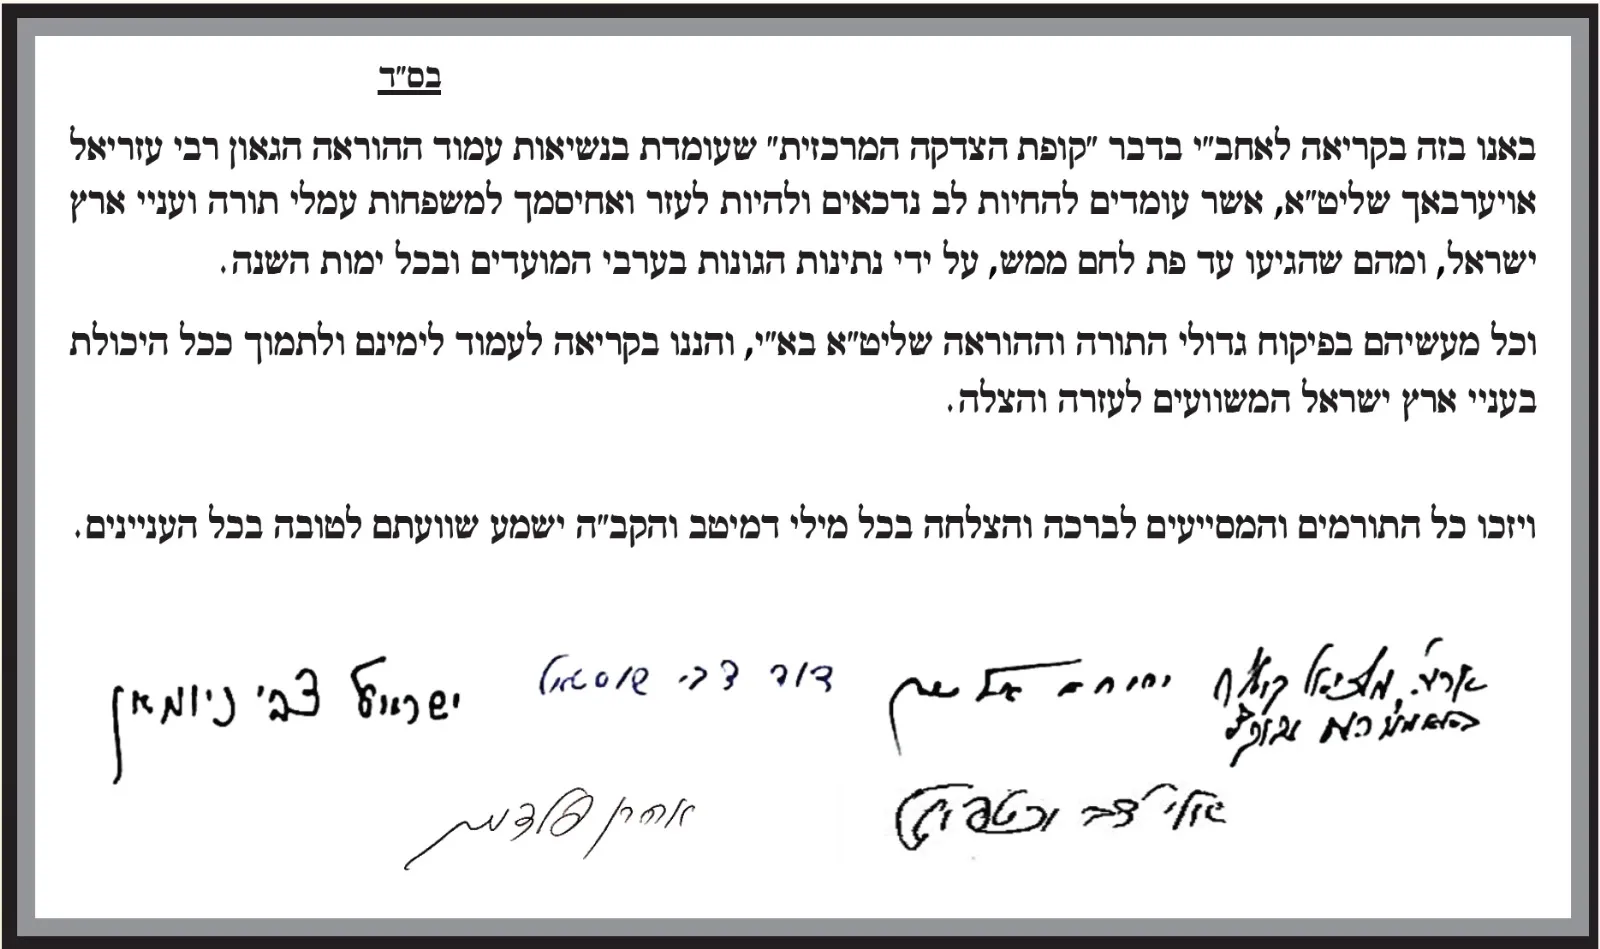 בס"ד
באנו בזה בקריאה לאחב"י בדבר "קופת הצדקה המרכזית" שעומדת בנשיאות עמוד ההוראה הגאון רבי עזריאל
אויערבאך שליט"א, אשר עומדים להחיות לב נדכאים ולהיות לעזר ואחיסמך למשפחות עמלי תורה ועניי ארץ
ישראל, ומהם שהגיעו עד פת לחם ממש, על ידי נתינות הגונות בערבי המועדים ובכל ימות השנה.
וכל מעשיהם בפיקוח גדולי התורה וההוראה שליט"א בא"י, והננו בקריאה לעמוד לימינם ולתמוך ככל היכולת
בעניי ארץ ישראל המשוועים לעזרה והצלה.
ויזכו כל התורמים והמסייעים לברכה והצלחה בכל מילי דמיטב והקב"ה ישמע שוועתם לטובה בכל העניינים.
ירוחם
דוד צבי
ישראל צבי ניומאן
אהרן פלדמן